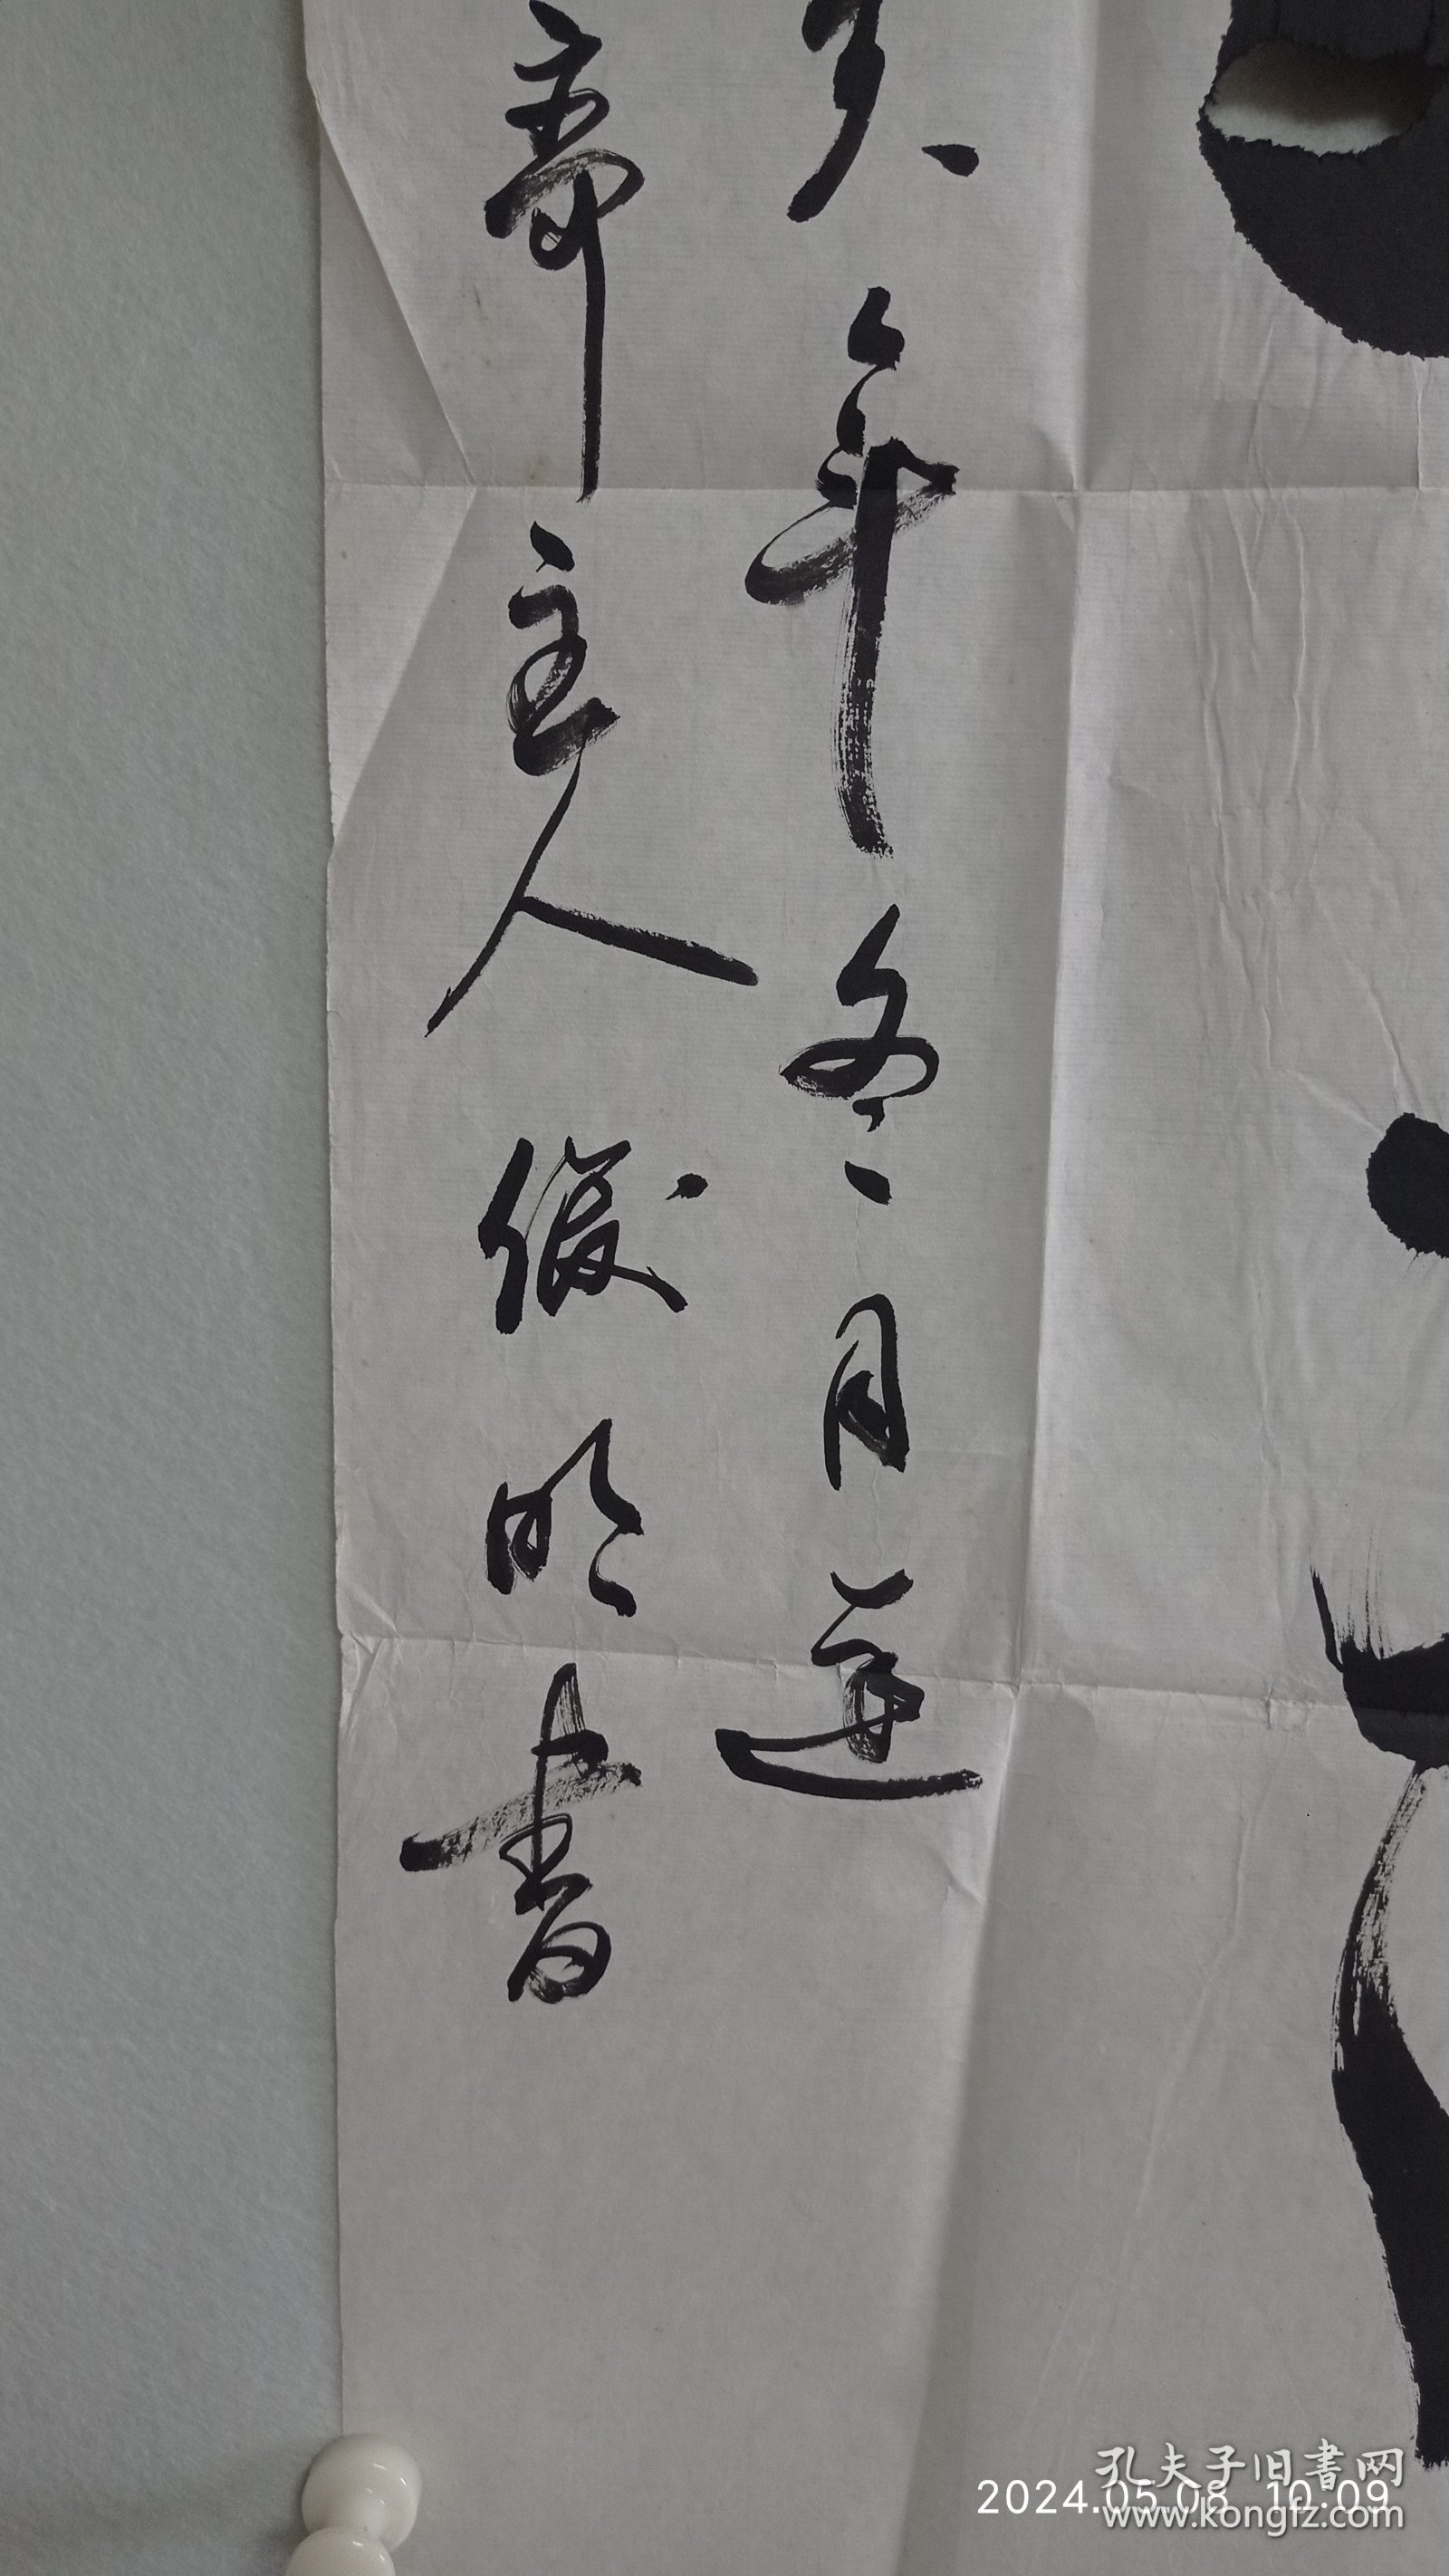 年冬月连
斋主人俊明书
2024.05.08 10:09
孔夫子旧书网
www.kongfz.com